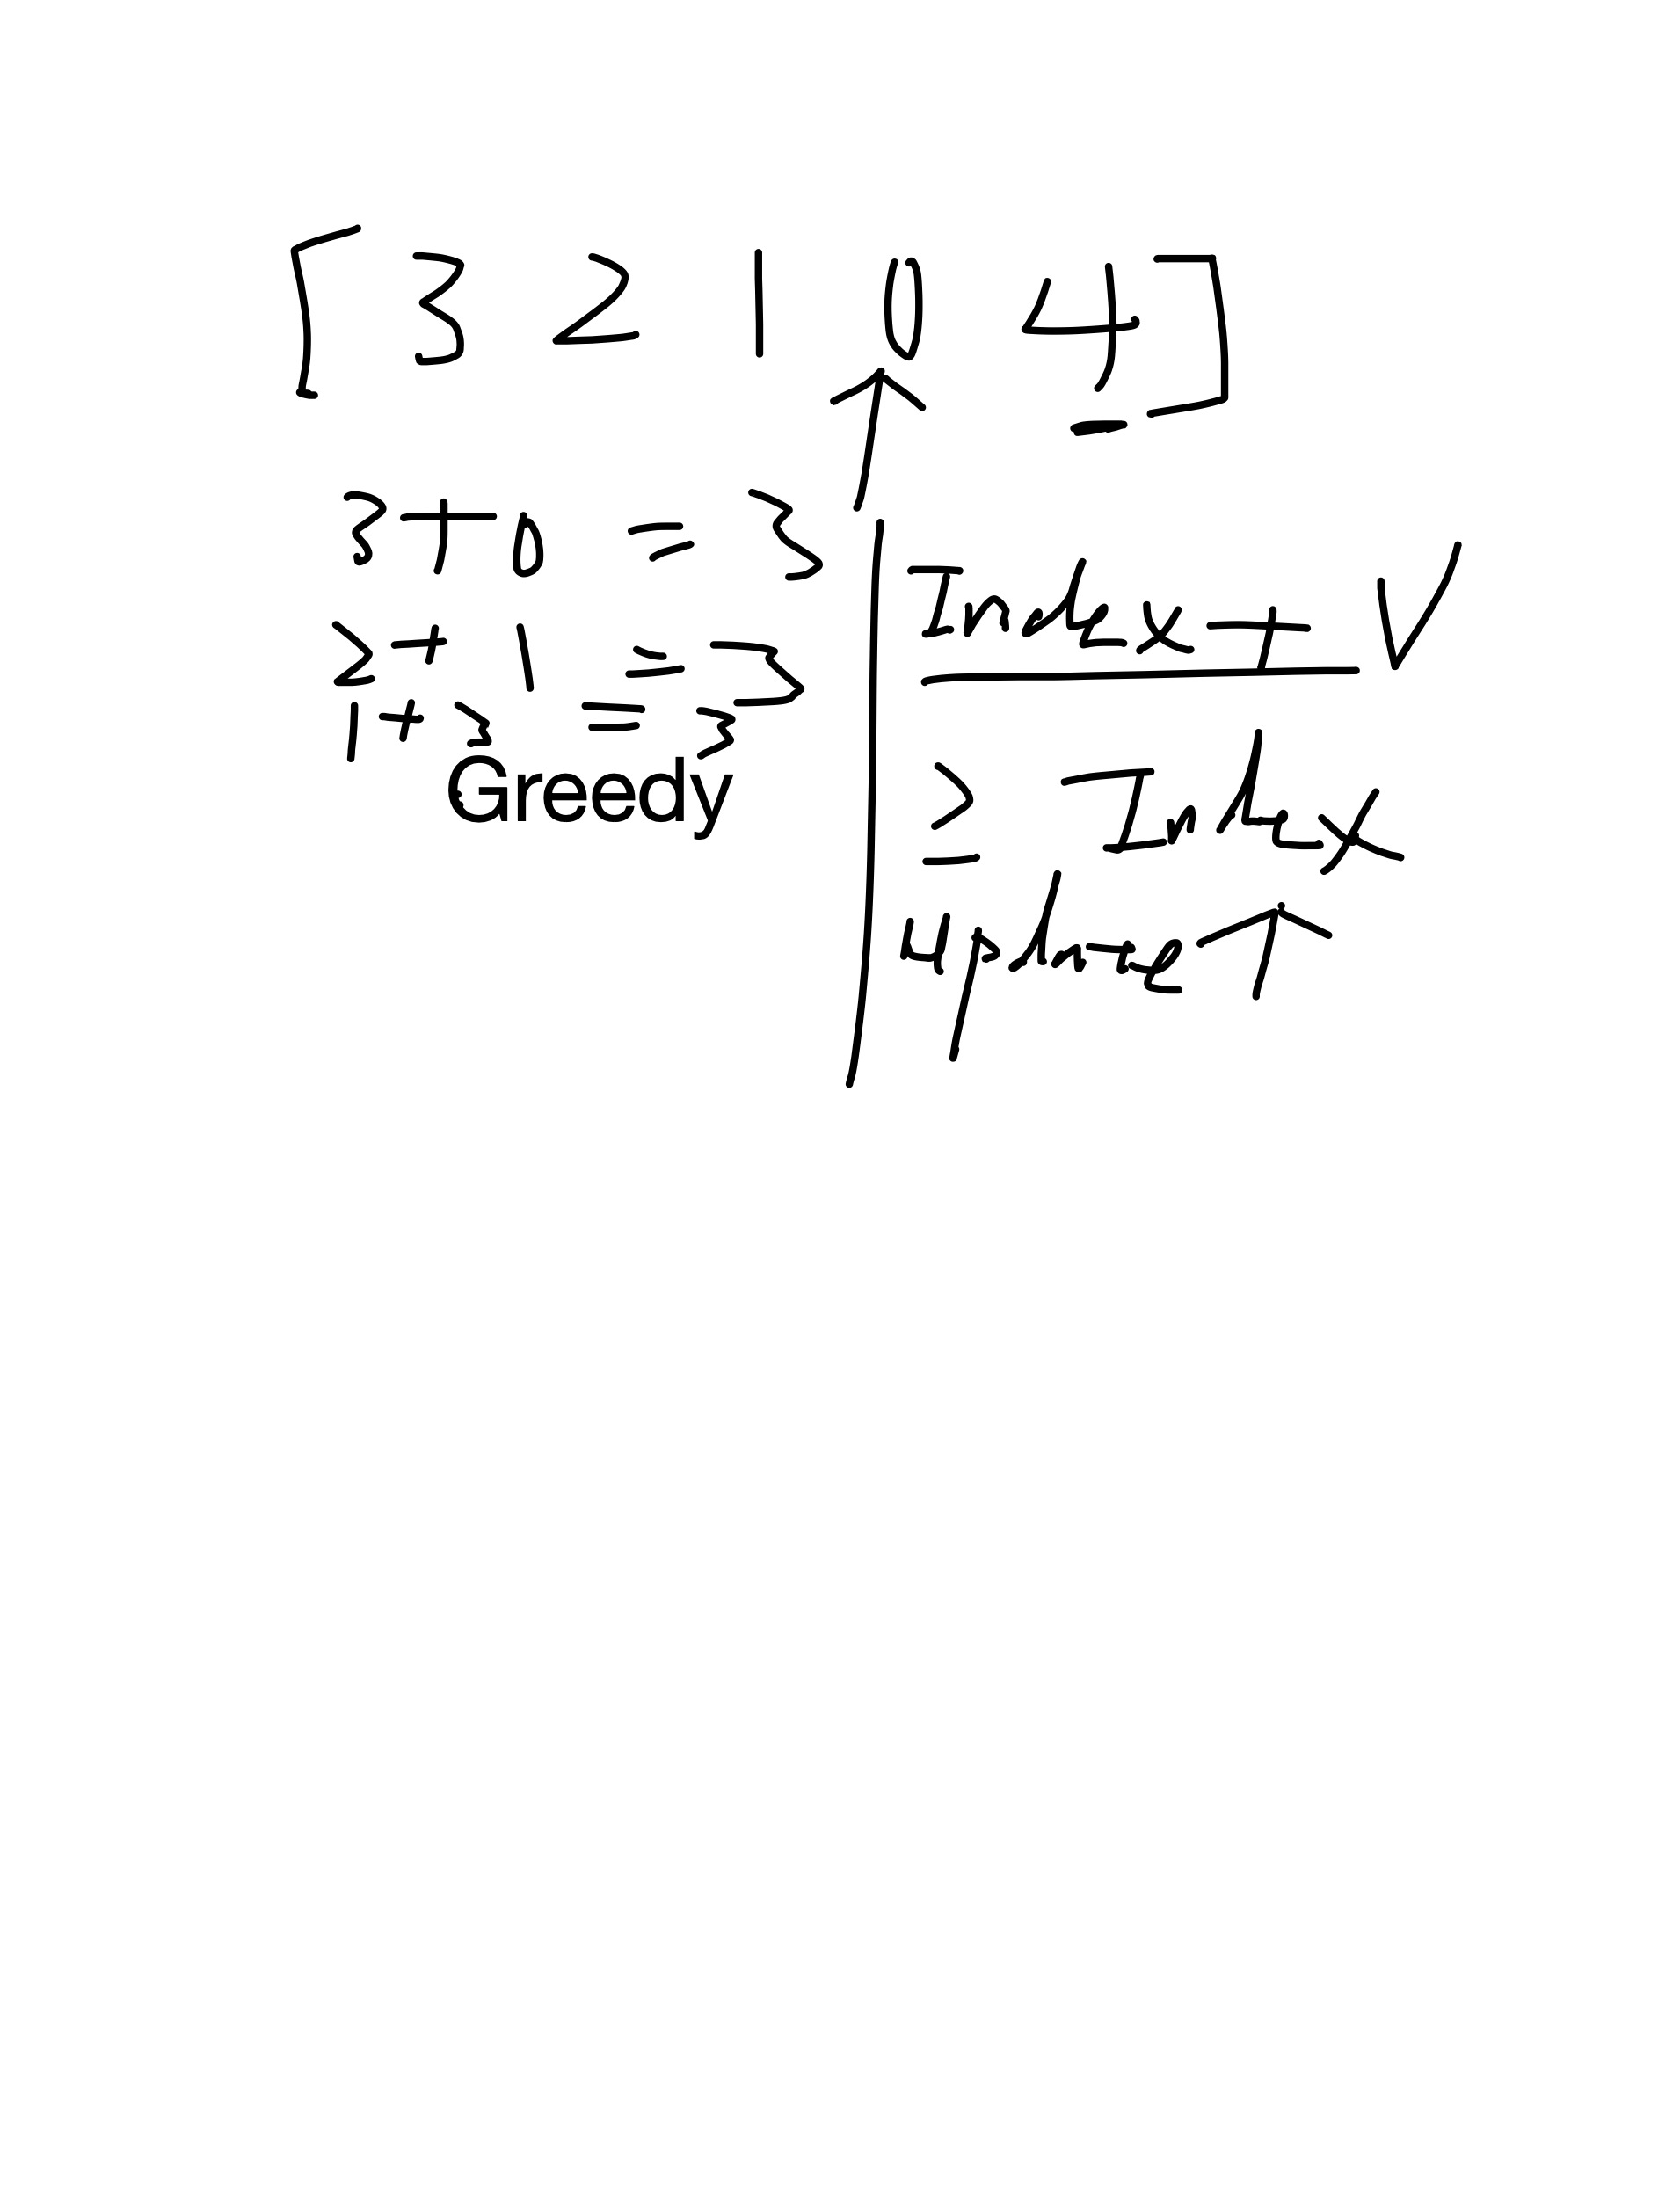 [ 3 2 1 0 4 ]
3 + 0 = 3
2 + 1 = 3
1 + 3 = 3
Greedy
Index + V
≥ Index
update ↑